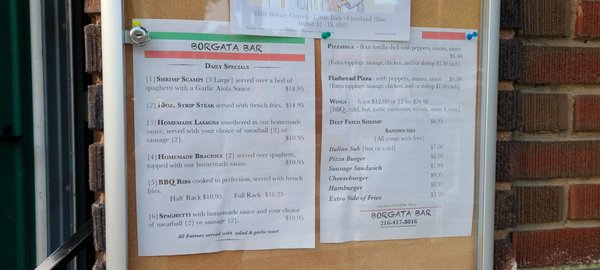 Holy Rosary Church · Little Italy · Cleveland Ohio
August 12 - 15, 2022
BORGATA BAR
DAILY SPECIALS
{1} SHRIMP SCAMPI {3 Large} served over a bed of
spaghetti with a Garlic Aiola Sauce. $14.95
{2} 10oz. STRIP STEAK served with french fries. $14.95
{3} HOMEMADE LASAGNA smothered in our homemade
sauce, served with your choice of meatball {2} or
sausage {2}. $10.95
{4} HOMEMADE BRACIOLE {2} served over spaghetti,
topped with our homemade sauce. $10.95
{5} BBQ RIBS cooked to perfection, served with french
fries.
Half Rack $10.95 Full Rack $16.25
{6} SPAGHETTI with homemade sauce and your choice
of meatball {2} or sausage {2}. $10.95
All Entrees served with salad & garlic toast
PIZZADILA - flour tortilla shell with peppers, onions, sauce
$6.00
{Extra toppings: sausage, chicken, and/or shrimp $1.50 each}
Flatbread Pizza - with peppers, onions, sauce $6.00
{Extra toppings: sausage, chicken, and/or shrimp $1.50 each}
WINGS - 6 for $12.00 or 12 for $21.00
{BBQ, mild, hot, garlic parmesan, teriyaki, sweet & sour}
DEEP FRIED SHRIMP $8.95
SANDWICHES
{All come with fries}
Italian Sub {hot or cold} $7.00
Pizza Burger $8.50
Sausage Sandwich $7.95
Cheeseburger $9.95
Hamburger $8.95
Extra Side of Fries $3.50
BORGATA BAR
216-417-8016